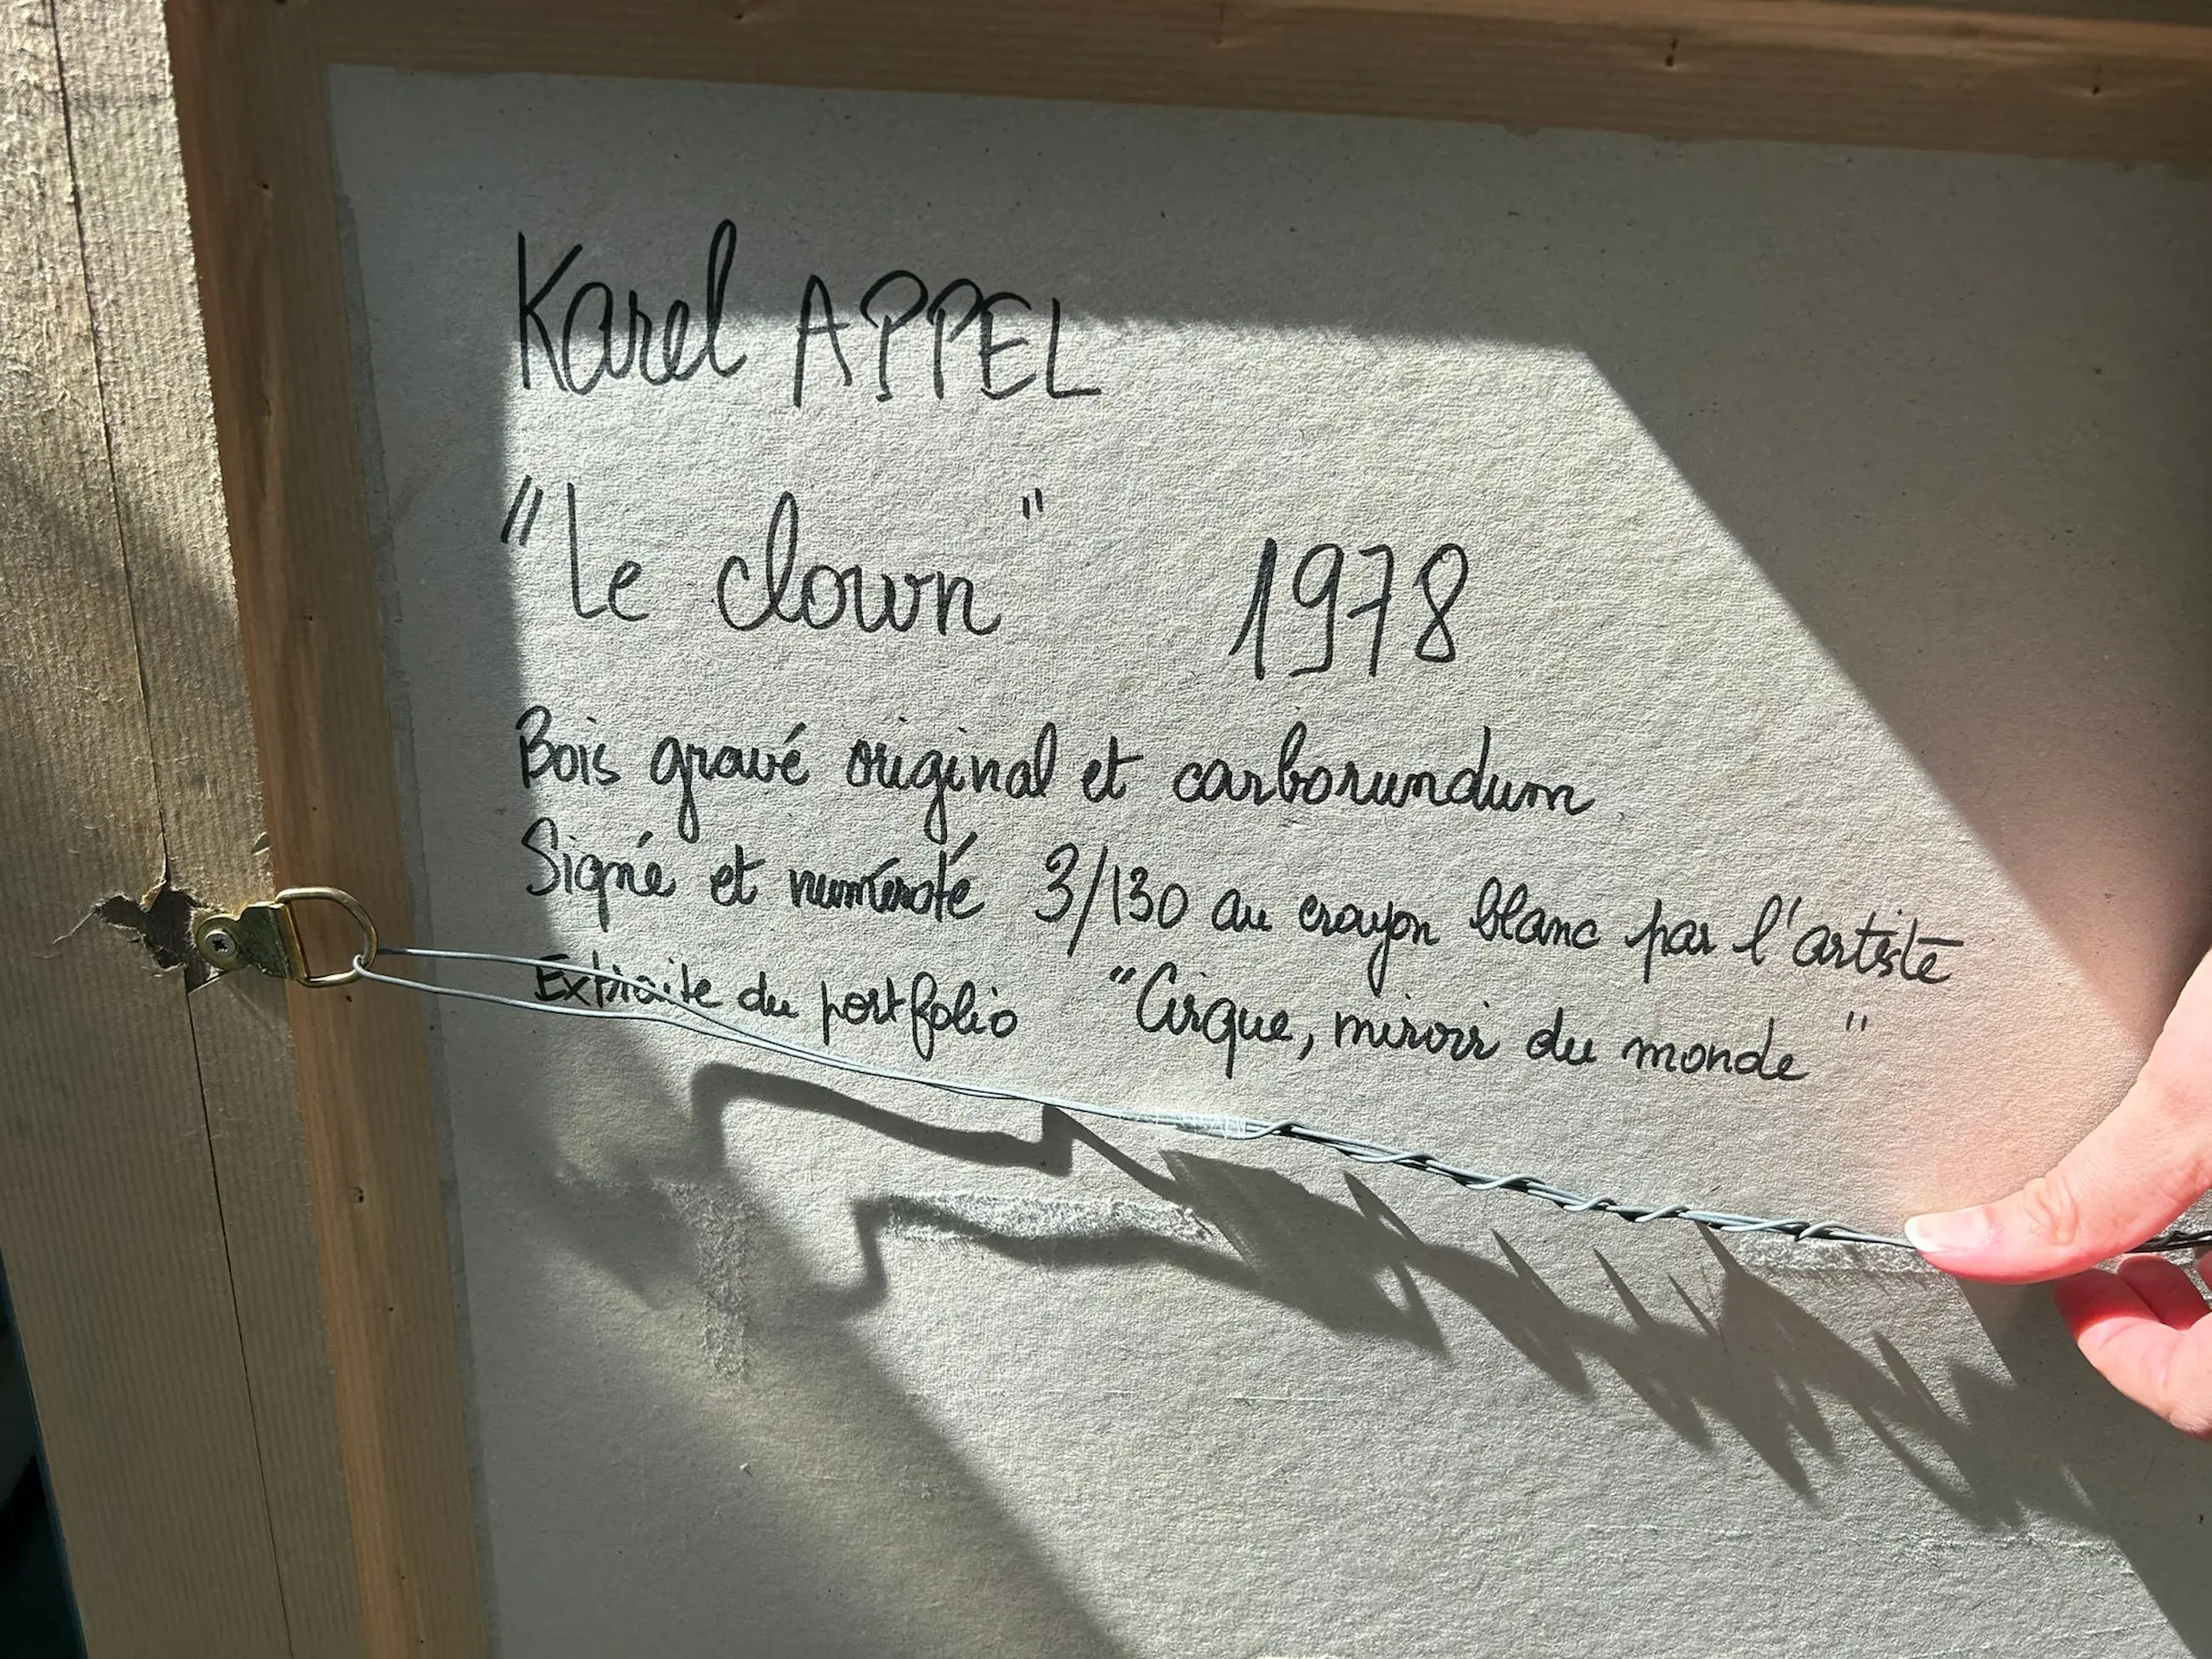 Karel APPEL
"Le clown" 1978
Bois gravé original et carborundum
Signé et numéroté 3/130 au crayon blanc par l'artiste
Extraite du portfolio "Cirque, miroir du monde"